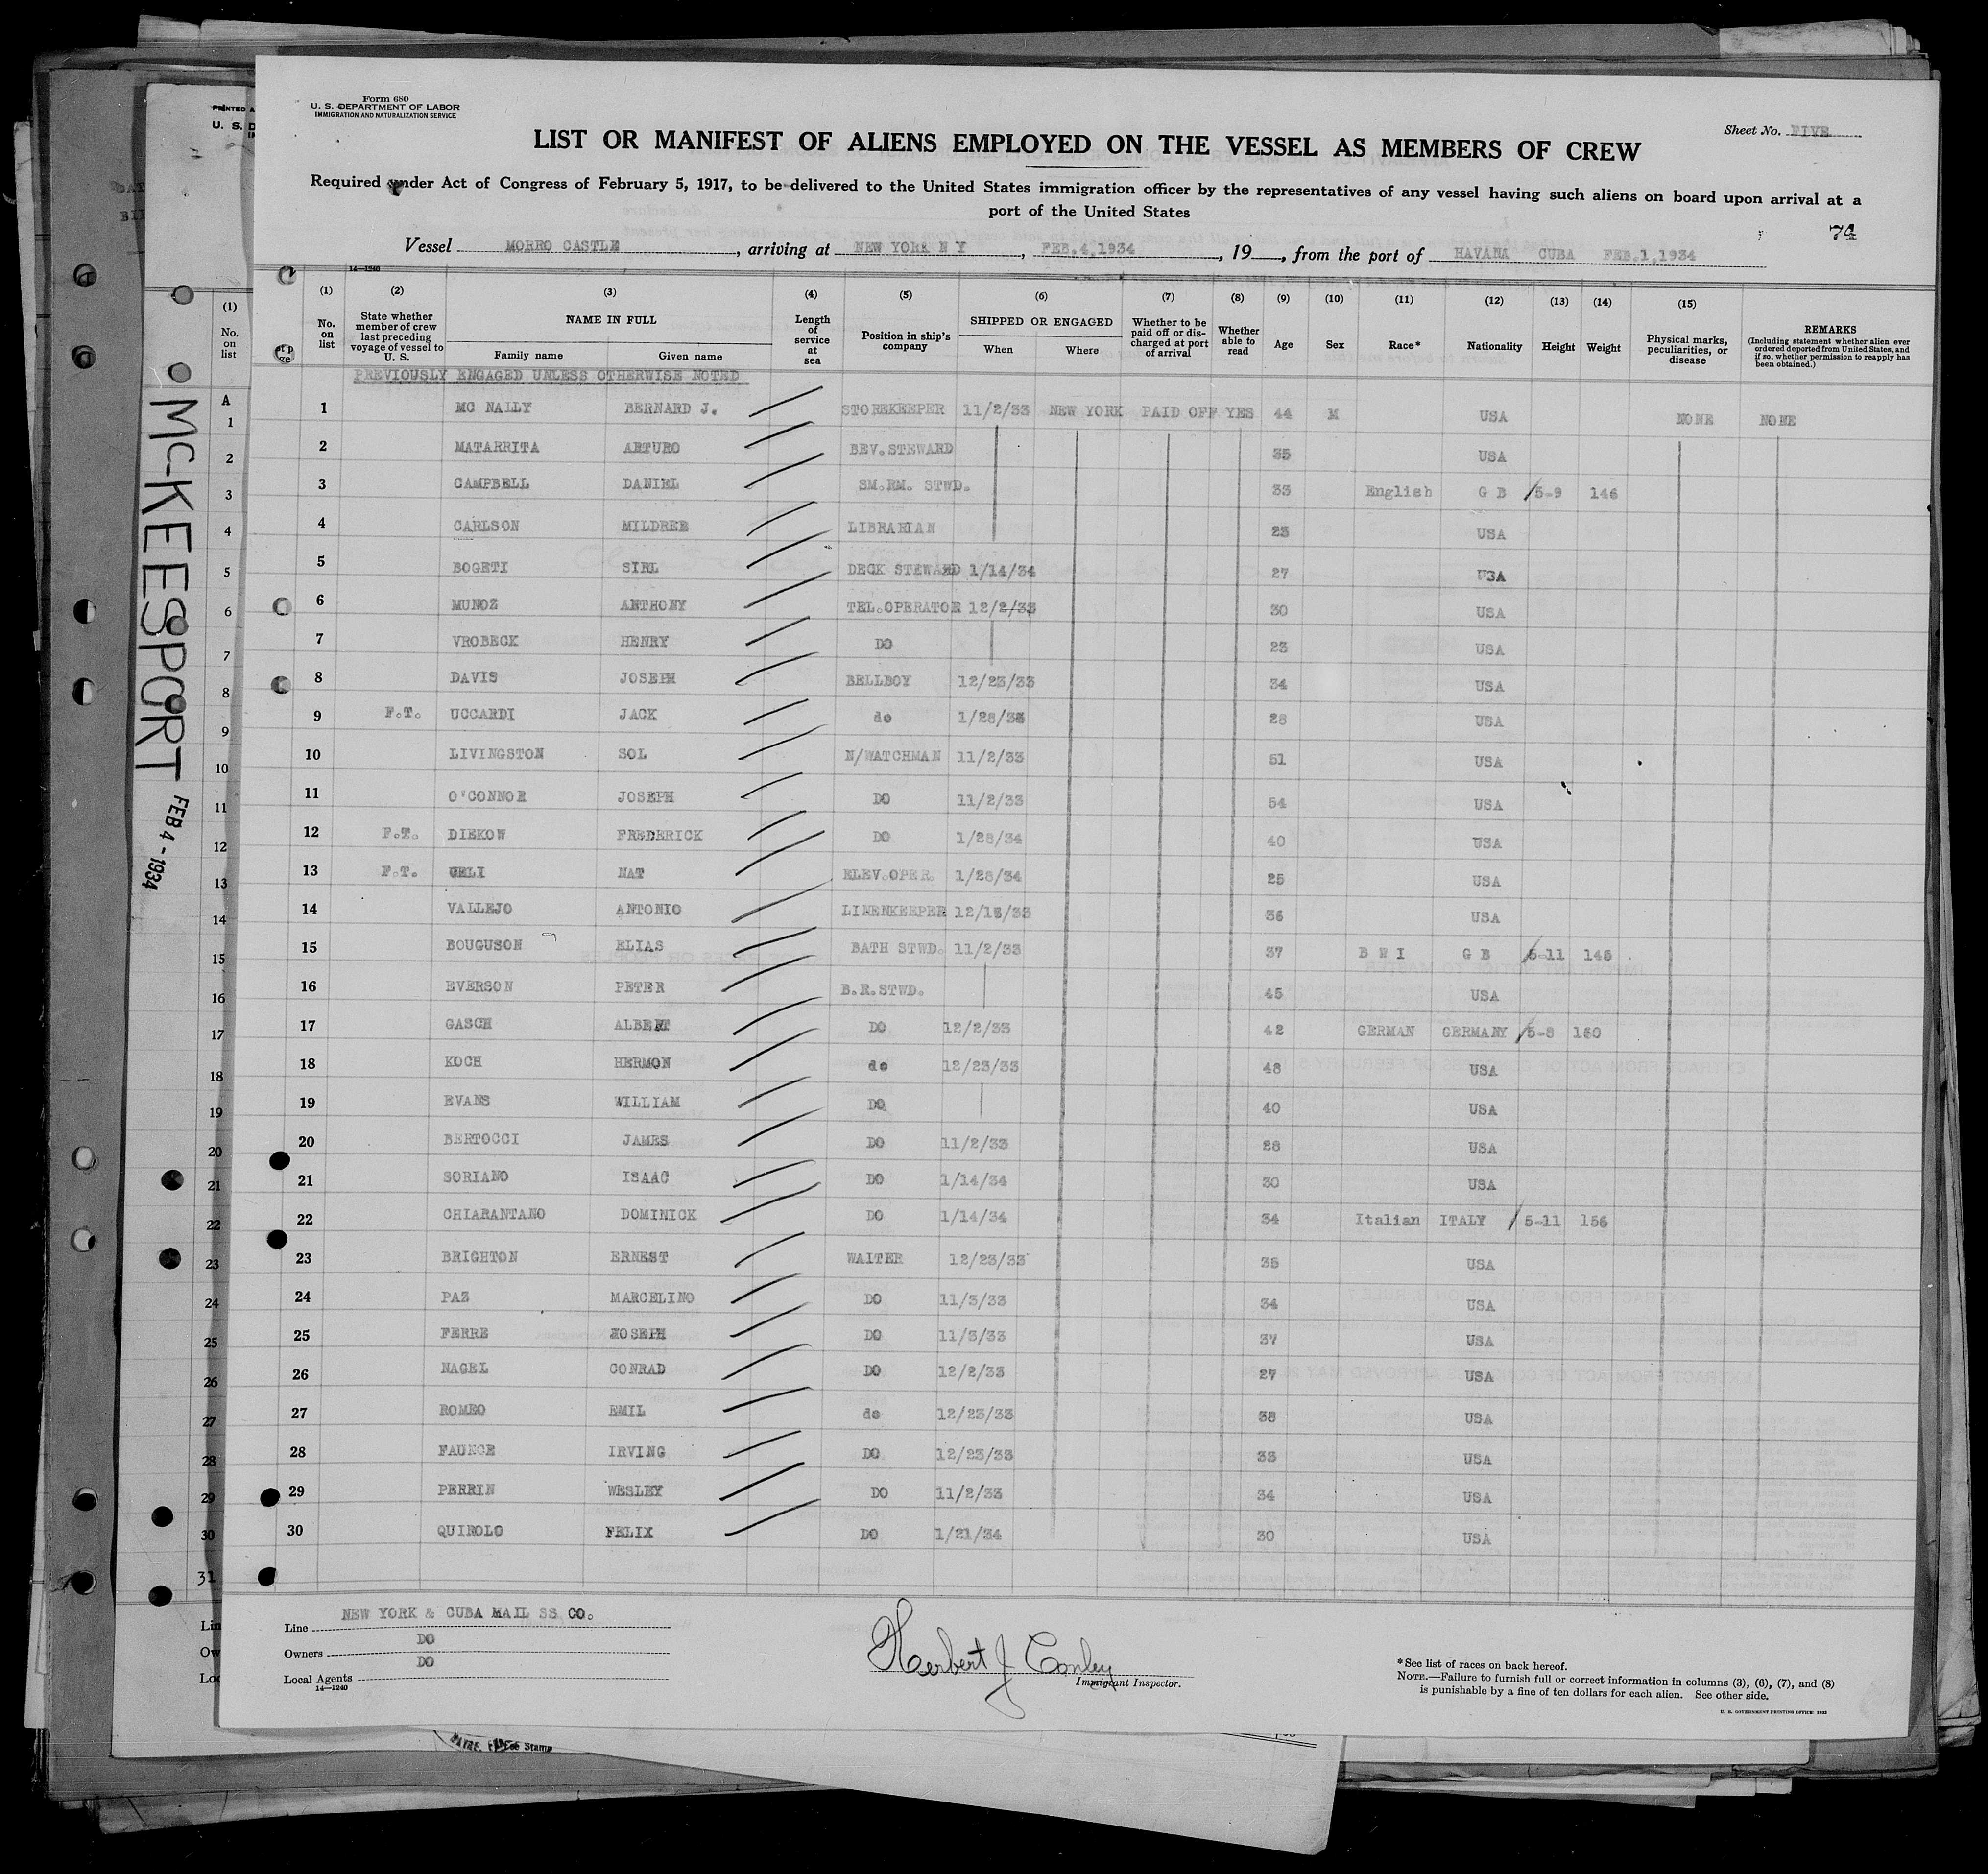 Form 680
U. S. DEPARTMENT OF LABOR
IMMIGRATION AND NATURALIZATION SERVICE
Sheet No. FIVE
LIST OR MANIFEST OF ALIENS EMPLOYED ON THE VESSEL AS MEMBERS OF CREW
Required under Act of Congress of February 5, 1917, to be delivered to the United States immigration officer by the representatives of any vessel having such aliens on board upon arrival at a
port of the United States
74
Vessel MORRO CASTLE, arriving at NEW YORK N Y, FEB.4,1934, 19, from the port of HAVANA CUBA FEB.1,1934
14—1240
(1) (2) (3) (4) (5) (6) (7) (8) (9) (10) (11) (12) (13) (14) (15)
No. on list State whether member of crew last preceding voyage of vessel to U. S. NAME IN FULL Family name Given name Length of service at sea Position in ship's company SHIPPED OR ENGAGED When Where Whether to be paid off or discharged at port of arrival Whether able to read Age Sex Race* Nationality Height Weight Physical marks, peculiarities, or disease REMARKS (Including statement whether alien ever ordered deported from United States, and if so, whether permission to reapply has been obtained.)
PREVIOUSLY ENGAGED UNLESS OTHERWISE NOTED
1 MC NALLY BERNARD J. STOREKEEPER 11/2/33 NEW YORK PAID OFF YES 44 M USA NONE NONE
2 MATARRITA ARTURO BEV.STEWARD 35 USA
3 CAMPBELL DANIEL SM.RM. STWD. 33 English G B 5-9 146
4 CARLSON MILDRED LIBRARIAN 23 USA
5 BOGETI SIRL DECK STEWARD 1/14/34 27 USA
6 MUNOZ ANTHONY TEL.OPERATOR 12/2/33 30 USA
7 VROBECK HENRY DO 23 USA
8 DAVIS JOSEPH BELLBOY 12/23/33 34 USA
9 F.T. UCCARDI JACK do 1/28/34 28 USA
10 LIVINGSTON SOL N/WATCHMAN 11/2/33 51 USA
11 O'CONNOR JOSEPH DO 11/2/33 54 USA
12 F.T. DIEKOW FREDERICK DO 1/28/34 40 USA
13 F.T. GELI NAT ELEV.OPER. 1/28/34 25 USA
14 VALLEJO ANTONIO LINENKEEPER 36 USA
15 BOUGUSON ELIAS BATH STWD. 11/2/33 37 B W I G B 5-11 145
16 EVERSON PETER B.R.STWD. 45 USA
17 GASCH ALBERT DO 12/2/33 42 GERMAN GERMANY 5-8 150
18 KOCH HERMON do 12/23/33 48 USA
19 EVANS WILLIAM DO 40 USA
20 BERTOCCI JAMES DO 11/2/33 28 USA
21 SORIANO ISAAC DO 1/14/34 30 USA
22 CHIARANTANO DOMINICK DO 1/14/34 34 Italian ITALY 5-11 156
23 BRIGHTON ERNEST WAITER 12/23/33 USA
24 PAZ MARCELINO DO 11/3/33 34 USA
25 FERRE JOSEPH DO 11/3/33 37 USA
26 NAGEL CONRAD DO 12/2/33 27 USA
27 ROMEO EMIL do 12/23/33 38 USA
28 FAUNCE IRVING DO 12/23/33 33 USA
29 PERRIN WESLEY DO 11/2/33 34 USA
30 QUIROLO FELIX DO 1/21/34 30 USA
Line NEW YORK & CUBA MAIL SS CO.
Owners DO
Local Agents DO
14—1240
Herbert J Conley
Immigrant Inspector.
*See list of races on back hereof.
NOTE.—Failure to furnish full or correct information in columns (3), (6), (7), and (8)
is punishable by a fine of ten dollars for each alien. See other side.
U. S. GOVERNMENT PRINTING OFFICE: 1933
MC-KEESPORT
FEB 4-1934
PRINTED
U. S. D
(1)
No. on list
A
1
2
3
4
5
6
7
8
9
10
11
12
13
14
15
16
17
18
19
20
21
22
23
24
25
26
27
28
29
30
31
Lin
Ow
Loc
Stamp